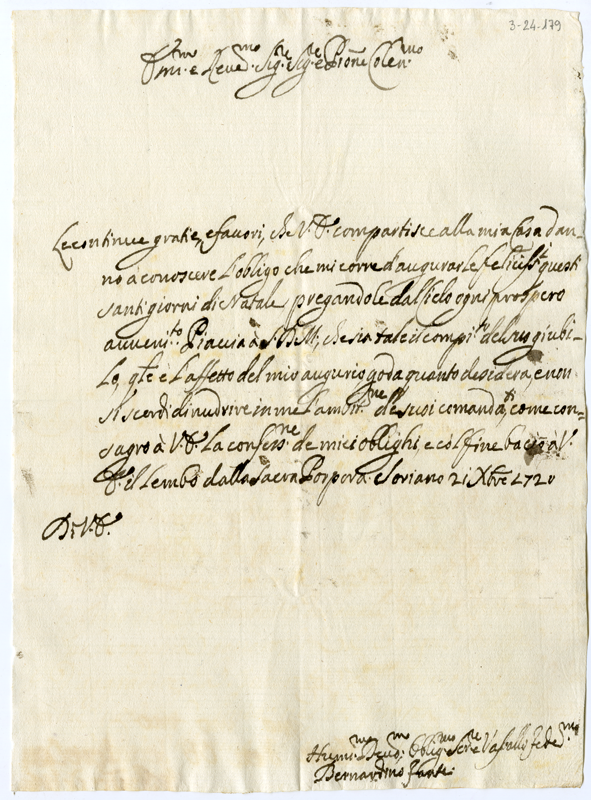 3-24-179
Em.mo e Rev.mo Sig.re Sig.re e Pñone Colen.mo
Le continue gratie, e favori, che V. E. compartisce alla mia Casa dan-
no à conoscere l'obligo che mi corre d'augurarle feliciss.i questi
santi giorni di Natale pregandole dal Cielo ogni prospero
avveni.to Piaccia à S. D. M., che sia tale il compi.to del suo giubi-
lo, qle è l'affetto del mio augurio goda quanto desidera, e non
si scordi di nudrire in me l'ambit.ne de suoi comanda.ti, come con-
sagro à V. E. la confess.ne de miei oblighi, e col fine bacio à V.
E. il lembo dalla Sacra Porpora. Soriano 21 Xbre 1720
Di V. E.
Humi.mo Devo.mo Oblig.mo Ser.re e Vassallo fede.mo
Bernardino Fanti